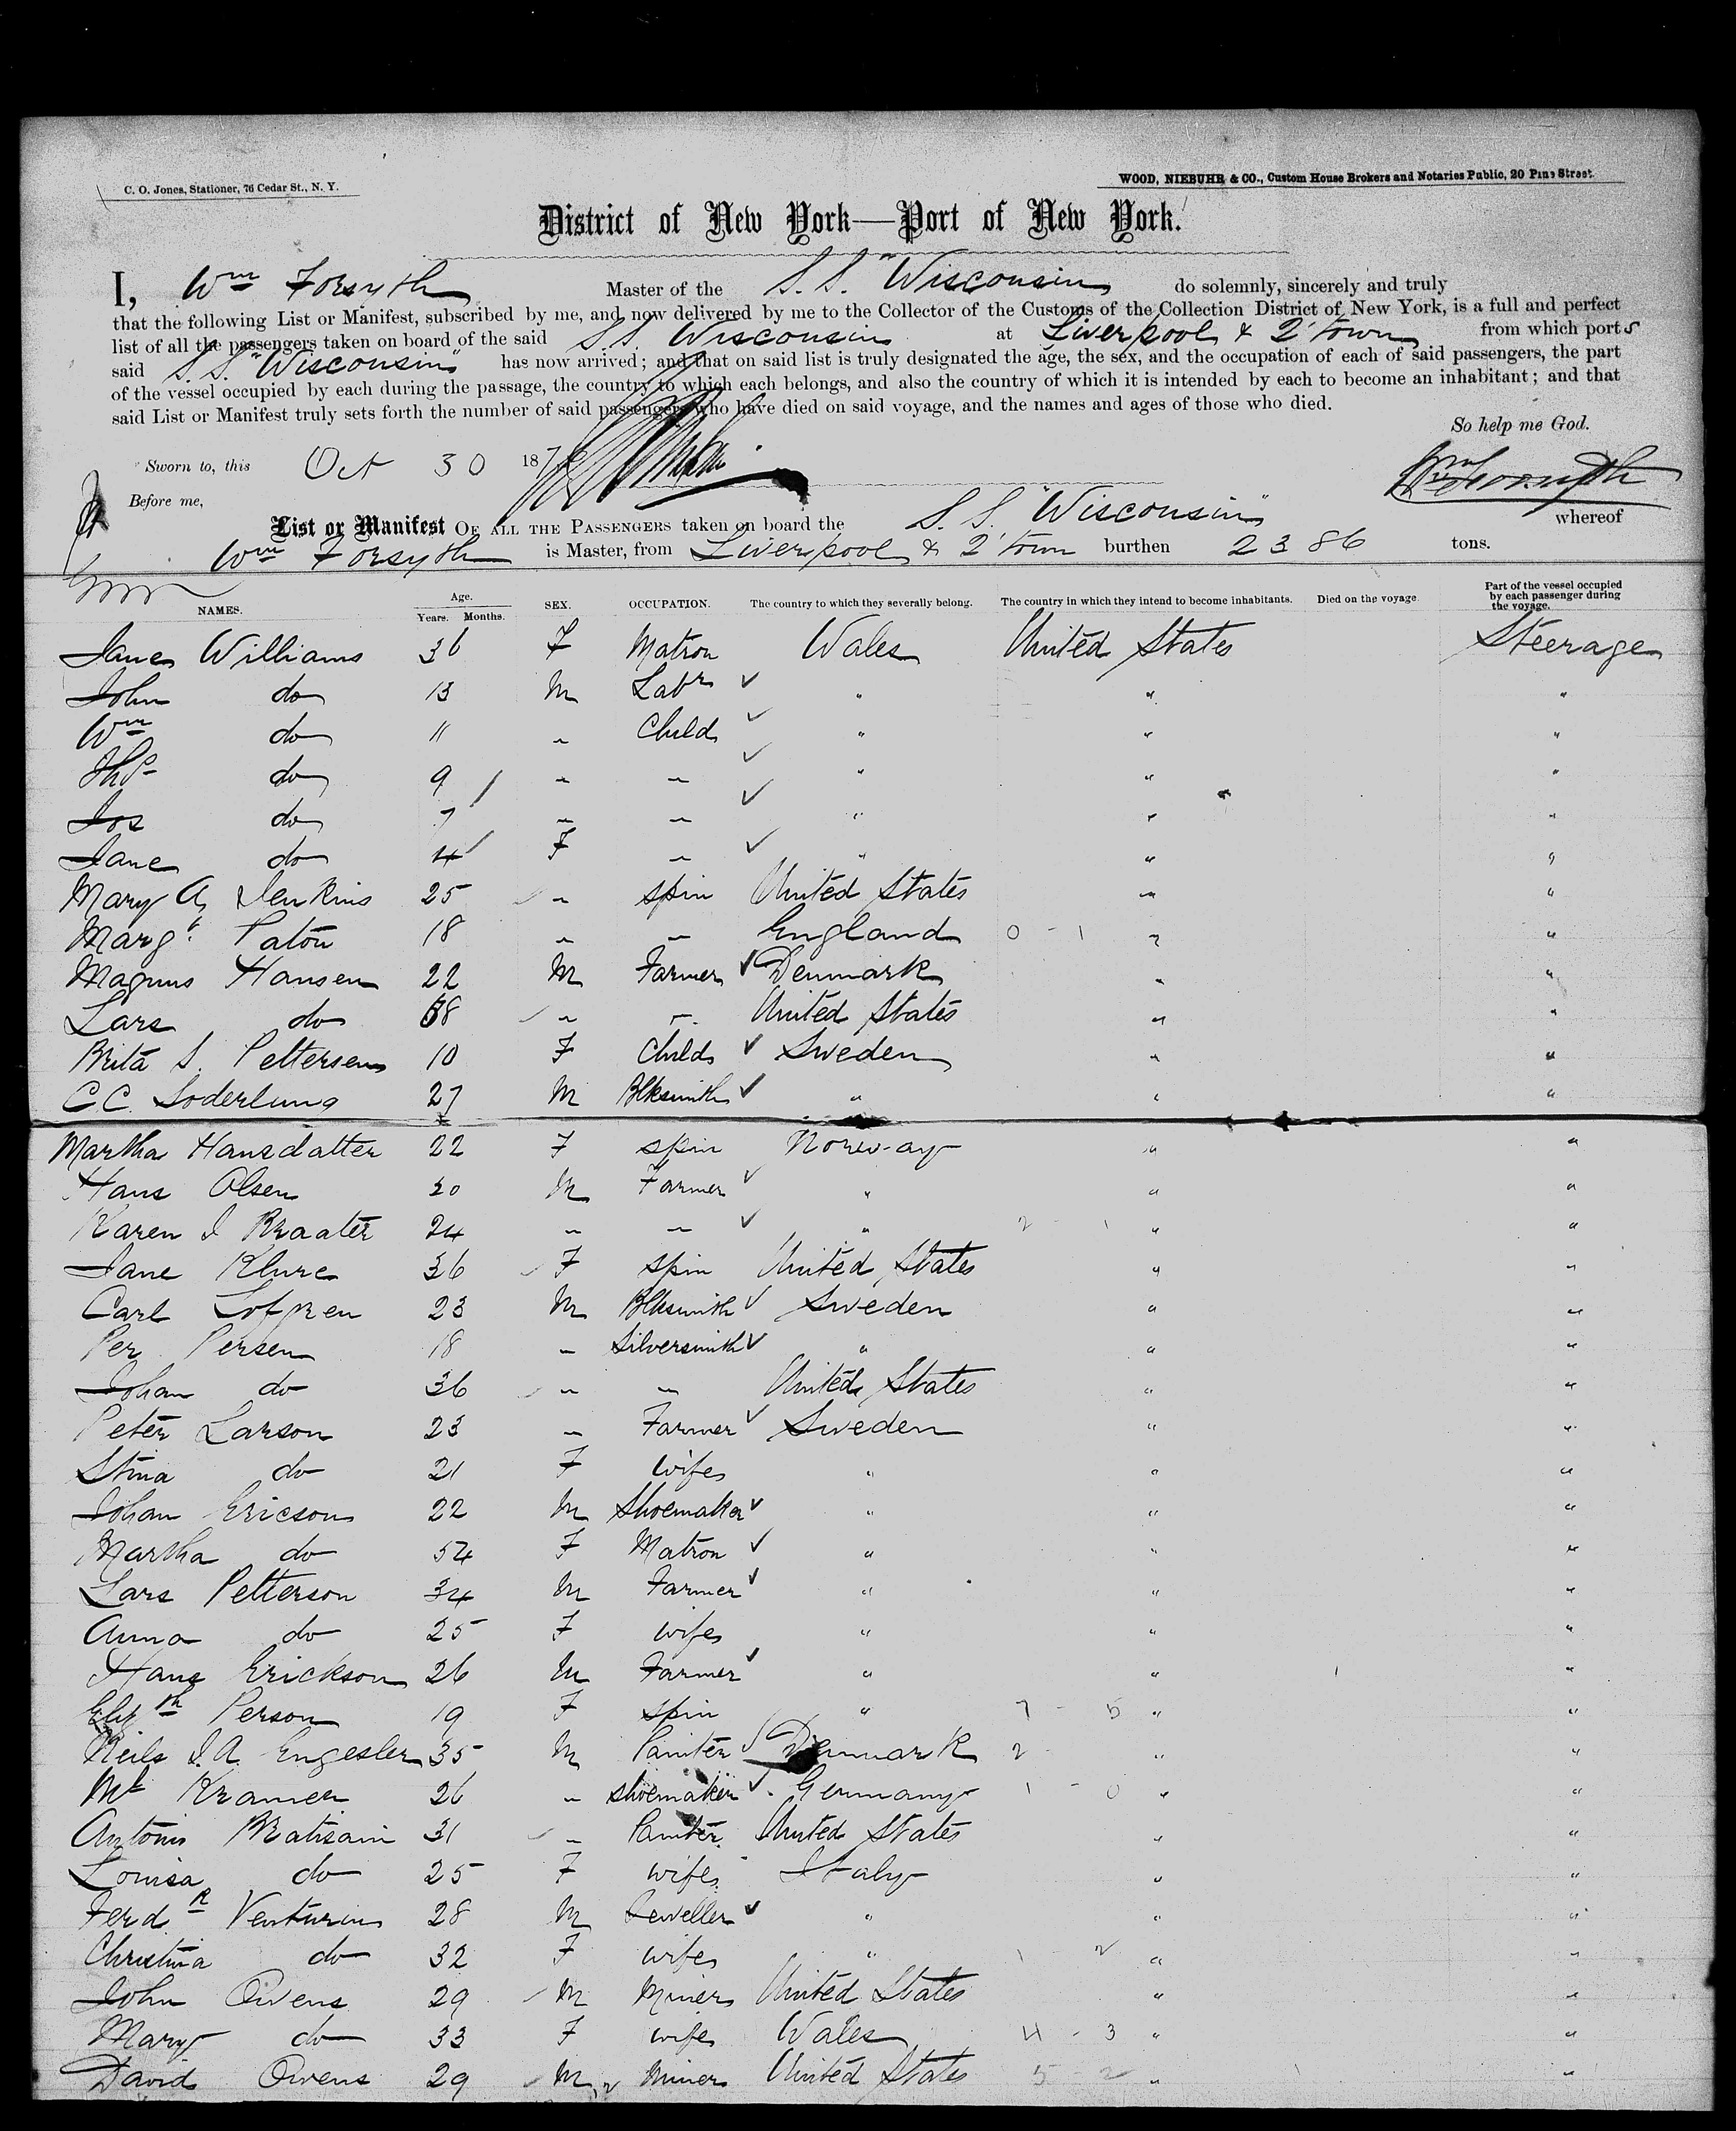 C. O. Jones, Stationer, 76 Cedar St., N. Y.
WOOD, NIEBUHR & CO., Custom House Brokers and Notaries Public, 20 Pine Street.
District of New York—Port of New York.
I, Wm Forsyth Master of the S.S. "Wisconsin do solemnly, sincerely and truly
that the following List or Manifest, subscribed by me, and now delivered by me to the Collector of the Customs of the Collection District of New York, is a full and perfect
list of all the passengers taken on board of the said S.S. Wisconsin at Liverpool & Q'town from which ports
said S.S. "Wisconsin" has now arrived; and that on said list is truly designated the age, the sex, and the occupation of each of said passengers, the part
of the vessel occupied by each during the passage, the country to which each belongs, and also the country of which it is intended by each to become an inhabitant; and that
said List or Manifest truly sets forth the number of said passengers who have died on said voyage, and the names and ages of those who died.
So help me God.
Sworn to, this Oct 30 187
Wm Forsyth
Before me,
List or Manifest OF ALL THE PASSENGERS taken on board the S.S. "Wisconsin" whereof
Wm Forsyth is Master, from Liverpool & Q'town burthen 2386 tons.
NAMES. Age. Years. Months. SEX. OCCUPATION. The country to which they severally belong. The country in which they intend to become inhabitants. Died on the voyage. Part of the vessel occupied by each passenger during the voyage.
Jane Williams 36 F Matron Wales United States Steerage
John do 13 M Labr ✓ " " "
Wm do 11 " Child ✓ " " "
Thos do 9 " " ✓ " " "
Jos do 7 " " ✓ " " "
Jane do 4 F " ✓ " " "
Mary A. Jenkins 25 " spin United States " "
Margt Paton 18 " " England 0 - 1 " "
Magnus Hansen 22 M Farmer ✓ Denmark " "
Lars do 38 " " United States " "
Brita S. Pettersen 10 F Child ✓ Sweden " "
C.C. Soderlung 27 M Blksmith ✓ " " "
Martha Hansdatter 22 F spin Norway " "
Hans Olsen 20 M Farmer ✓ " " "
Karen J Braater 24 " " ✓ " 2 - 1 " "
Jane Klure 36 F spin United States " "
Carl Lofgren 23 M Blksmith ✓ Sweden " "
Per Persen 18 " Silversmith ✓ " " "
Johan do 36 " " United States " "
Peter Larson 23 " Farmer ✓ Sweden " "
Stina do 21 F wife " " "
Johan Ericson 22 M Shoemaker ✓ " " "
Martha do 54 F Matron ✓ " " "
Lars Petterson 34 M Farmer ✓ " " "
Anna do 25 F wife " " "
Hans Erickson 26 M Farmer ✓ " " "
Elizth Person 19 F spin " 7 - 5 " "
Neils J.A. Engesler 35 M Painter ✓ Denmark 2 " "
Mt Kramer 26 " shoemaker ✓ Germany 1 - 0 " "
Antonio Bratisain 31 " Painter United States " "
Louisa do 25 F wife Italy " "
Ferdr Venturin 28 M Jeweller ✓ " " "
Christina do 32 F wife " 1 2 " "
John Owens 29 M Miner United States " "
Mary do 33 F wife Wales 4 - 3 " "
David Owens 29 M Miner United States 5 - 2 " "